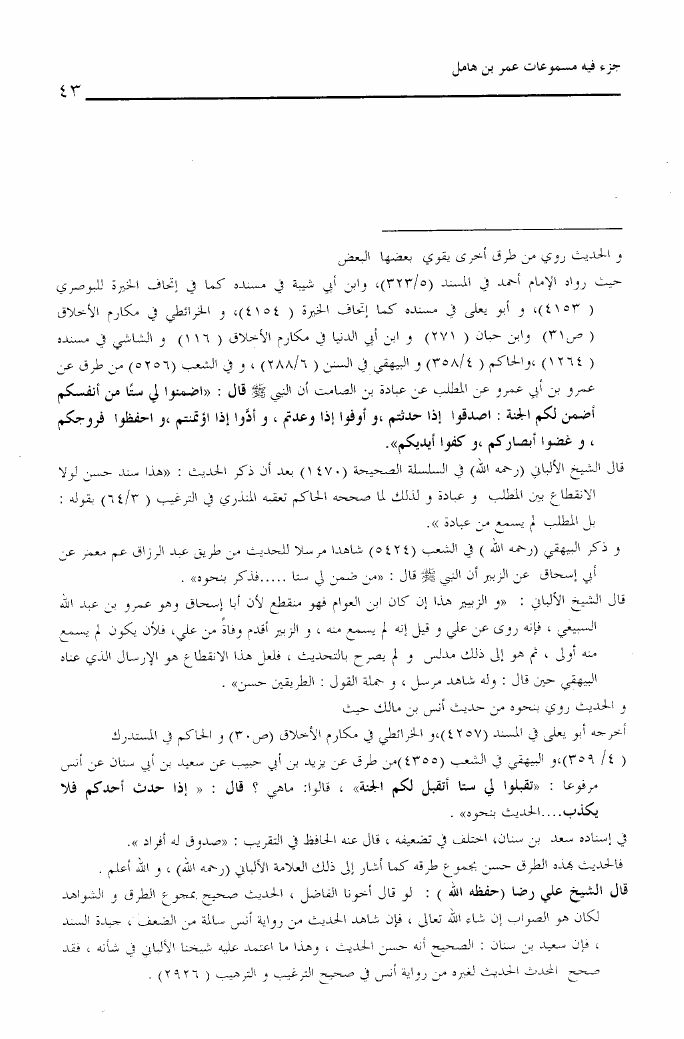 جزء فيه مسموعات عمر بن هامل
٤٣
و الحديث روي من طرق أخرى يقوي بعضها البعض
حيث رواه الإمام أحمد في المسند (٣٢٣/٥)، وابن أبي شيبة في مسنده كما في إتحاف الخيرة للبوصري
( ٤١٥٣)، و أبو يعلى في مسنده كما إتحاف الخيرة ( ٤١٥٤)، و الخرائطي في مكارم الأخلاق
( ص٣١) وابن حبان ( ٢٧١) و ابن أبي الدنيا في مكارم الأخلاق ( ١١٦) و الشاشي في مسنده
( ١٢٦٤) ،والحاكم ( ٣٥٨/٤) و البيهقي في السنن ( ٢٨٨/٦) ، و في الشعب (٥٢٥٦) من طرق عن
عمرو بن أبي عمرو عن المطلب عن عبادة بن الصامت أن النبي ﷺ قال : «اضمنوا لي ستًا من أنفسكم
أضمن لكم الجنة : اصدقوا إذا حدثتم ،و أوفوا إذا وعدتم ، و أدّوا إذا اؤتمنتم ،و احفظوا فروجكم
، و غضوا أبصاركم ،و كفوا أيديكم».
قال الشيخ الألباني (رحمه الله) في السلسلة الصحيحة (١٤٧٠) بعد أن ذكر الحديث : «هذا سند حسن لولا
الانقطاع بين المطلب و عبادة و لذلك لما صححه الحاكم تعقبه المنذري في الترغيب ( ٦٤/٣) بقوله :
بل المطلب لم يسمع من عبادة ».
و ذكر البيهقي (رحمه الله ) في الشعب (٥٤٢٤) شاهدا مرسلا للحديث من طريق عبد الرزاق عم معمر عن
أبي إسحاق عن الزبير أن النبي ﷺ قال : «من ضمن لي ستا .....فذكر بنحوه» .
قال الشيخ الألباني : «و الزبير هذا إن كان ابن العوام فهو منقطع لأن أبا إسحاق وهو عمرو بن عبد الله
السبيعي ، فإنه روى عن علي و قيل إنه لم يسمع منه ، و الزبير أقدم وفاةً من علي، فلأن يكون لم يسمع
منه أولى ، ثم هو إلى ذلك مدلس و لم يصرح بالتحديث ، فلعل هذا الانقطاع هو الإرسال الذي عناه
البيهقي حين قال : وله شاهد مرسل ، و جملة القول : الطريقين حسن» .
و الحديث روي بنحوه من حديث أنس بن مالك حيث
أخرجه أبو يعلى في المسند (٤٢٥٧)،و الخرائطي في مكارم الأخلاق (ص٣٠) و الحاكم في المستدرك
( ٤/ ٣٥٩)،و البيهقي في الشعب (٤٣٥٥)من طرق عن يزيد بن أبي حبيب عن سعيد بن أبي سنان عن أنس
مرفوعا : «تقبلوا لي ستا أتقبل لكم الجنة» ، قالوا: ماهي ؟ قال : « إذا حدث أحدكم فلا
يكذب....الحديث بنحوه» .
في إسناده سعد بن سنان، اختلف في تضعيفه ، قال عنه الحافظ في التقريب : «صدوق له أفراد ».
فالحديث بهذه الطرق حسن بجموع طرقه كما أشار إلى ذلك العلامة الألباني (رحمه الله) ، و الله أعلم .
قال الشيخ علي رضا (حفظه الله ) : لو قال أخونا الفاضل ، الحديث صحيح بمجموع الطرق و الشواهد
لكان هو الصواب إن شاء الله تعالى ، فإن شاهد الحديث من رواية أنس سالمة من الضعف ، جيدة السند
، فإن سعيد بن سنان : الصحيح أنه حسن الحديث ، وهذا ما اعتمد عليه شيخنا الألباني في شأنه ، فقد
صحح المحدث الحديث لغيره من رواية أنس في صحيح الترغيب و الترهيب ( ٢٩٢٦) .